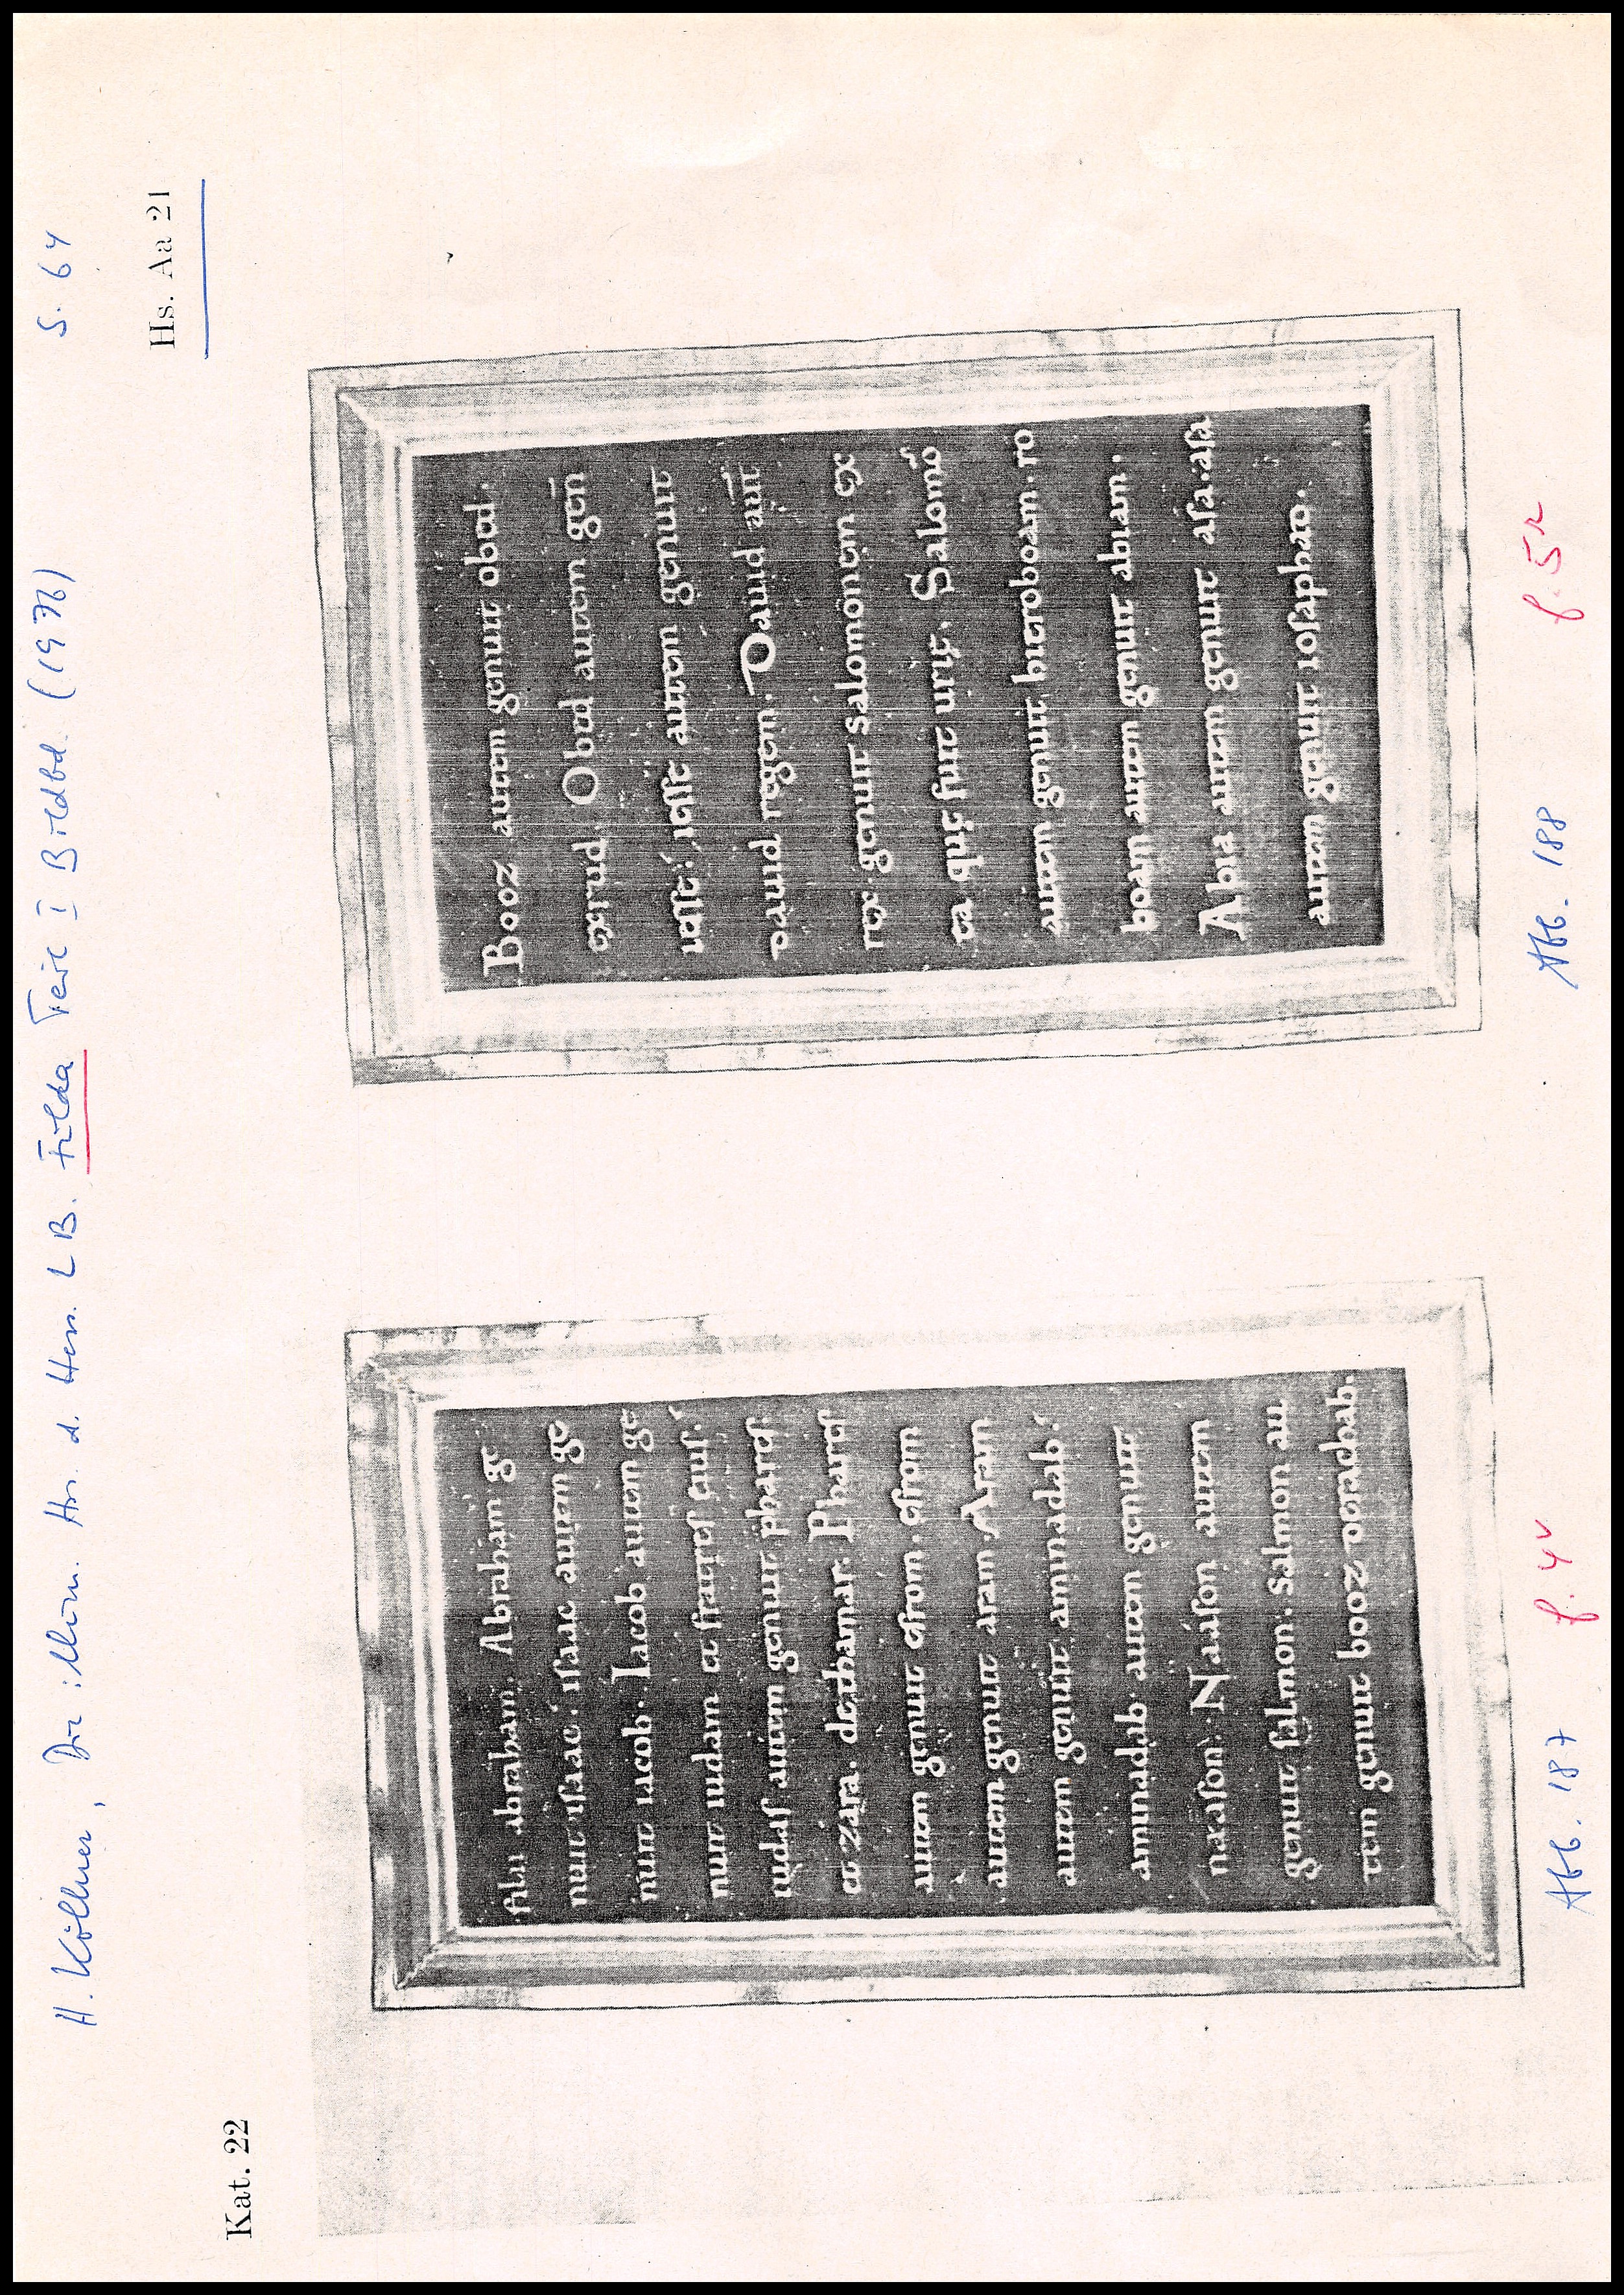 H. Köllner, Die illum. Hss. d. Hess. LB. Fulda Teil I Bildbd. (1976) S. 64
Hs. Aa 21
Kat. 22
filii abraham. Abraham ge
nuit isaac. isaac autem ge
nuit iacob. Iacob autem ge
nuit iudam et fratres eius.
iudas autem genuit phares
et zara. de thamar. Phares
autem genuit esrom. esrom
autem genuit aram. Aram
autem genuit aminadab.
aminadab autem genuit
naasson. Naasson autem
genuit salmon. salmon au
tem genuit booz de rachab.
Abb. 187
f. 4v
Booz autem genuit obed
ex ruth. Obed autem geñ
iesse. iesse autem genuit
dauid regem. Dauid aut̄
rex genuit salomonem ex
ea quȩ fuit uriȩ. Salomō
autem genuit hieroboam. ro
boam autem genuit abiam.
Abia autem genuit asa. asa
autem genuit iosaphat.
Abb. 188
f. 5r